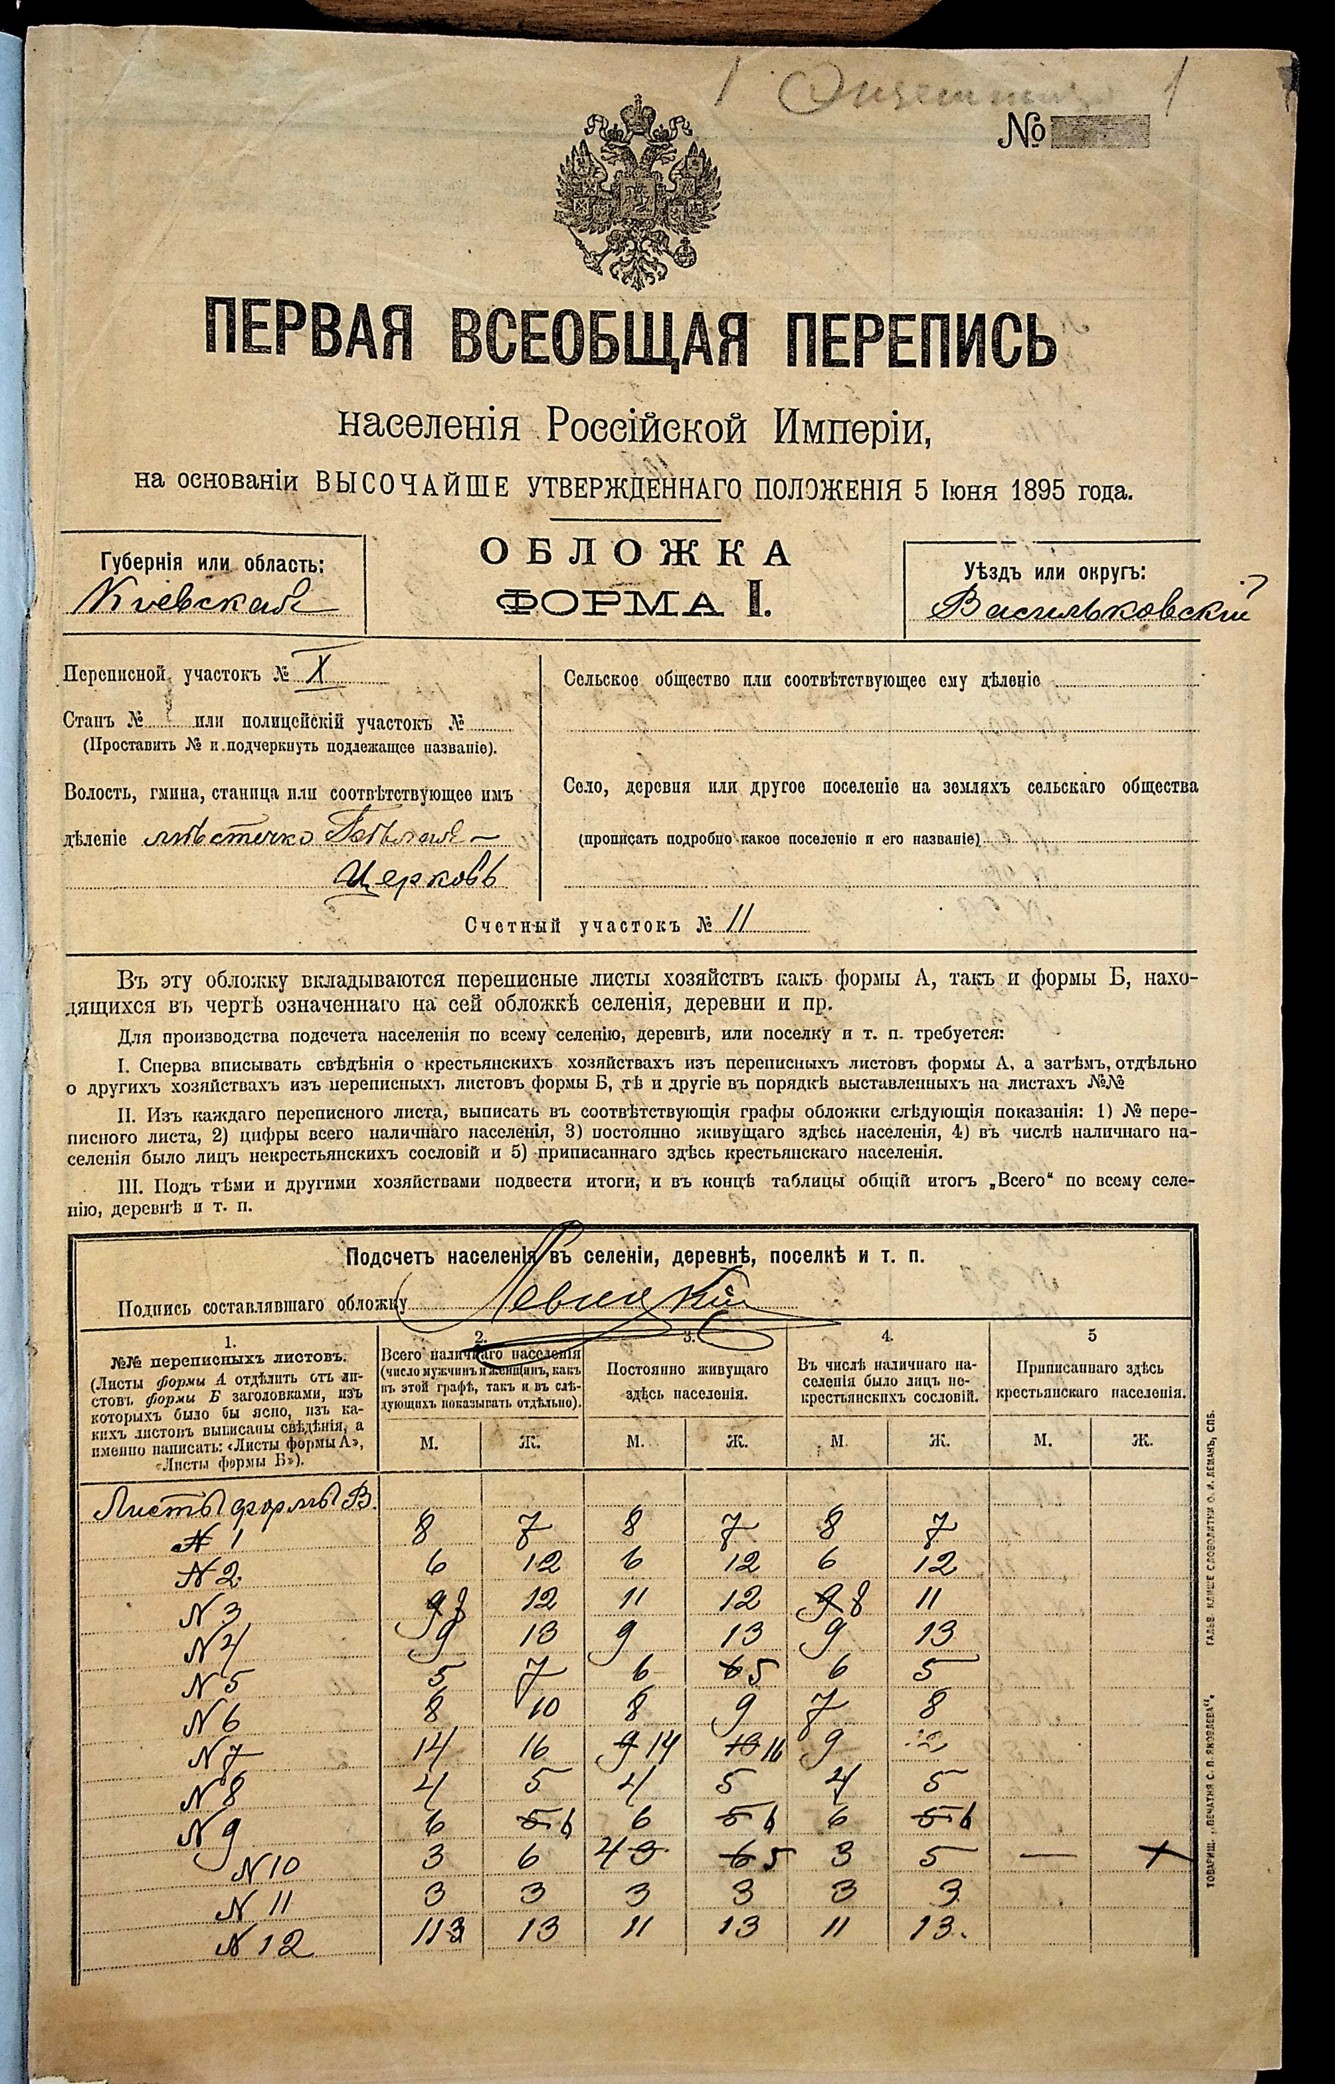 1 1
№
ПЕРВАЯ ВСЕОБЩАЯ ПЕРЕПИСЬ
населенія Россійской Имперіи,
на основаніи ВЫСОЧАЙШЕ УТВЕРЖДЕННАГО ПОЛОЖЕНІЯ 5 Іюня 1895 года.
ОБЛОЖКА
ФОРМА I.
Губернія или область:
Кіевская
Уѣздъ или округъ:
Васильковскій
Переписной участокъ № X
Станъ № или полицейскій участокъ №
(Проставить № и подчеркнуть подлежащее названіе).
Волость, гмина, станица или соотвѣтствующее имъ
дѣленіе мѣстечко Бѣлая-
Церковь
Сельское общество или соотвѣтствующее ему дѣленіе
Село, деревня или другое поселеніе на земляхъ сельскаго общества
(прописать подробно какое поселеніе и его названіе)
Счетный участокъ № 11
Въ эту обложку вкладываются переписные листы хозяйствъ какъ формы А, такъ и формы Б, нахо-
дящихся въ чертѣ означеннаго на сей обложкѣ селенія, деревни и пр.
Для производства подсчета населенія по всему селенію, деревнѣ, или поселку и т. п. требуется:
I. Сперва вписывать свѣдѣнія о крестьянскихъ хозяйствахъ изъ переписныхъ листовъ формы А, а затѣмъ, отдѣльно
о другихъ хозяйствахъ изъ переписныхъ листовъ формы Б, тѣ и другіе въ порядкѣ выставленныхъ на листахъ №№
II. Изъ каждаго переписного листа, выписать въ соотвѣтствующія графы обложки слѣдующія показанія: 1) № пере-
писного листа, 2) цифры всего наличнаго населенія, 3) постоянно живущаго здѣсь населенія, 4) въ числѣ наличнаго на-
селенія было лицъ некрестьянскихъ сословій и 5) приписаннаго здѣсь крестьянскаго населенія.
III. Подъ тѣми и другими хозяйствами подвести итоги, и въ концѣ таблицы общій итогъ „Всего“ по всему селе-
нію, деревнѣ и т. п.
Подсчетъ населенія въ селеніи, деревнѣ, поселкѣ и т. п.
Подпись составлявшаго обложку Левицкій
1.
№№ переписныхъ листовъ.
(Листы формы А отдѣлить отъ ли-
стовъ формы Б заголовками, изъ
которыхъ было бы ясно, изъ ка-
кихъ листовъ выписаны свѣдѣнія, а
именно написать: «Листы формы А»,
«Листы формы Б»).
2.
Всего наличнаго населенія
(число мужчинъ и женщинъ, какъ
въ этой графѣ, такъ и въ слѣ-
дующихъ показывать отдѣльно).
3.
Постоянно живущаго
здѣсь населенія.
4.
Въ числѣ наличнаго на-
селенія было лицъ не-
крестьянскихъ сословій.
5
Приписаннаго здѣсь
крестьянскаго населенія.
М. Ж. М. Ж. М Ж. М. Ж.
Листы формы В.
N 1 8 7 8 7 8 7
N 2 6 12 6 12 6 12
N 3 9 8 12 11 12 9 8 11
N 4 9 13 9 13 9 13
N 5 5 7 6 6 5 6 5
N 6 8 10 8 9 7 8
N 7 14 16 9 14 16 9
N 8 4 5 4 5 4 5
N 9 6 5 6 6 5 6 6 5 6
N 10 3 6 4 3 6 5 3 5 — +
N 11 3 3 3 3 3 3
N 12 11 13 11 13 11 13.
ГАЛЬВ. КЛИШЕ СЛОВОЛИТНИ О. И. ЛЕМАНЪ, СПБ.
ТОВАРИЩ. „ПЕЧАТНЯ С. П. ЯКОВЛЕВА“.